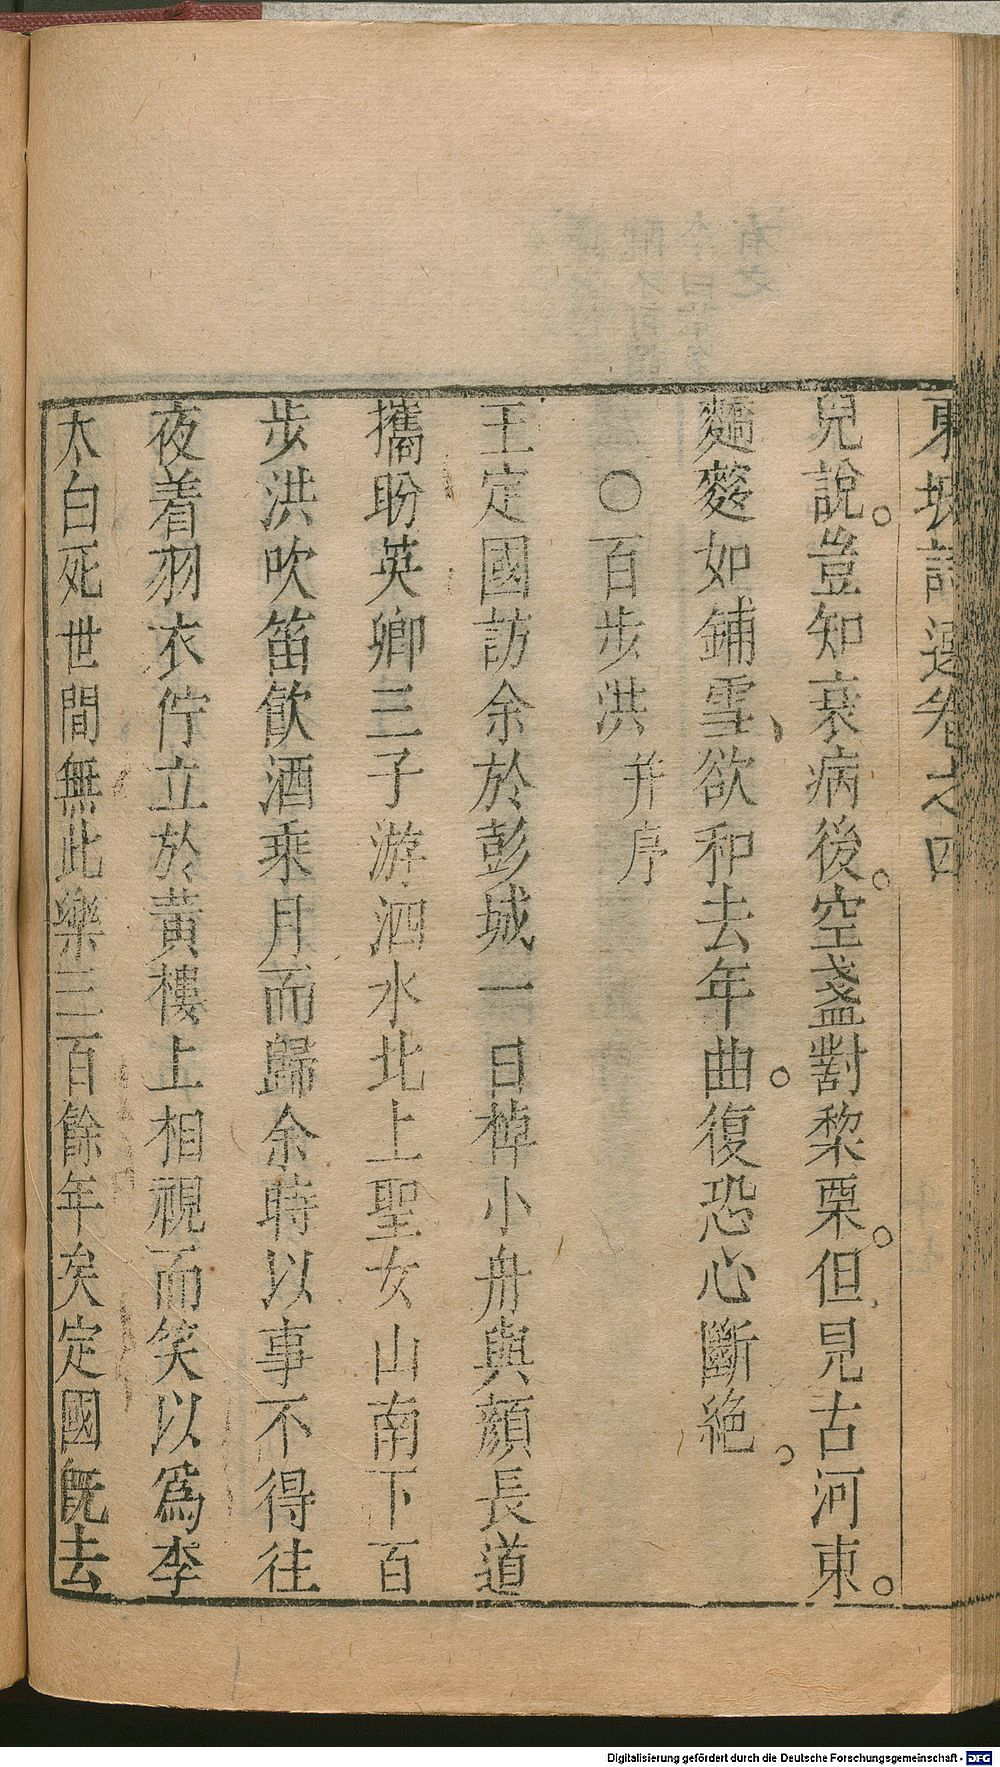 東坡詩選卷之四
兒說。豈知衰病後。空盞對黎栗。但見古河東。
麵麰如鋪雪、欲和去年曲。復恐心斷絶。
○百步洪 并序
王定國訪余於彭城一日棹小舟與顏長道
攜盼英卿三子游泗水北上聖女山南下百
步洪吹笛飲酒乘月而歸余時以事不得往
夜着羽衣佇立於黃樓上相視而笑以爲李
太白死世間無此樂三百餘年矣定國旣去
Digitalisierung gefördert durch die Deutsche Forschungsgemeinschaft - DFG